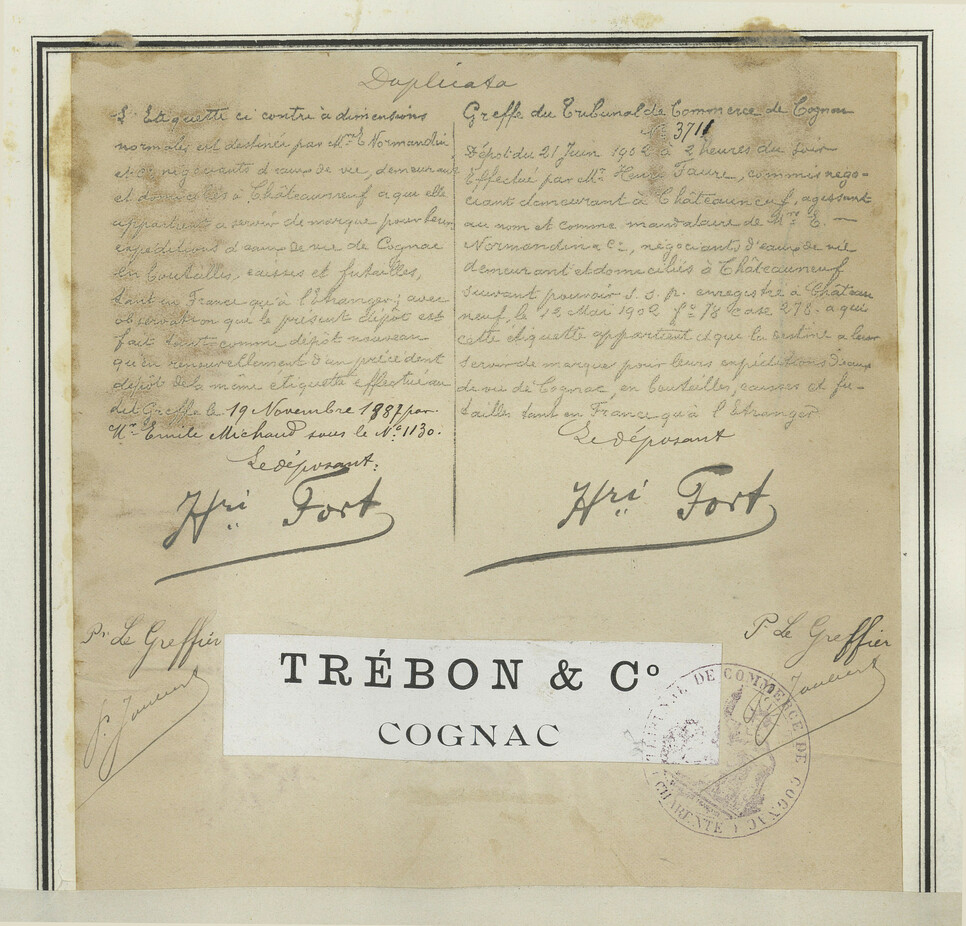 Duplicata
L'Etiquette ci contre à dimensions
normales est destinée par Mme E. Normandin
et Cie négociants d'eaux de vie, demeurant
et domiciliés à Châteauneuf à qui elle
appartient à servir de marque pour leurs
expéditions d'eaux de vie de Cognac
en bouteilles, caisses et futailles,
tant en France qu'à l'Etranger; avec
observation que le présent dépôt est
fait tant comme dépôt nouveau
qu'en renouvellement d'un précédent
dépôt de la même étiquette effectué au
dit Greffe le 19 Novembre 1887 par
Mr. Emile Michaud sous le No. 1130.
Le déposant:
Hri Fort
Greffe du Tribunal de Commerce de Cognac
No 3711
Dépôt du 21 Juin 1902 à 2 heures du soir
Effectué par Mr. Henri Faure, commis négo-
ciant demeurant à Châteauneuf, agissant
au nom et comme mandataire de Mme E. —
Normandin & Cie, négociants d'eaux de vie
demeurant et domiciliés à Châteauneuf
suivant pouvoir s.s.p. enregistré à Château
neuf, le 12 Mai 1902 fo 78 case 278. à qui
cette étiquette appartient et que la destine à leur
servir de marque pour leurs expéditions d'eaux
de vie de Cognac, en bouteilles, caisses et fu-
tailles tant en France qu'à l'Etranger
Le déposant
Hri Fort
Pr. Le Greffier
P. Le Greffier
TRÉBON & Co
COGNAC
TRIBUNAL DE COMMERCE DE COGNAC
(CHARENTE)